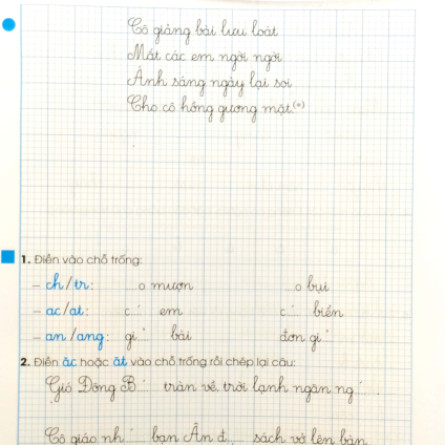 Cô giảng bài lưu loát
Mắt các em ngời ngời
Ánh sáng ngày lại soi
Cho cô hồng gương mặt.(*)
1. Điền vào chỗ trống:
– ch/tr: ...o mượn ...o bụi
– ac/at: c... em c... biển
– an/ang: gi... bài đơn gi...
2. Điền âc hoặc ât vào chỗ trống rồi chép lại câu:
Gió Đông B... tràn về, trời lạnh ngăn ng... .
Cô giáo nh... bạn Ân đ... sách vở lên bàn